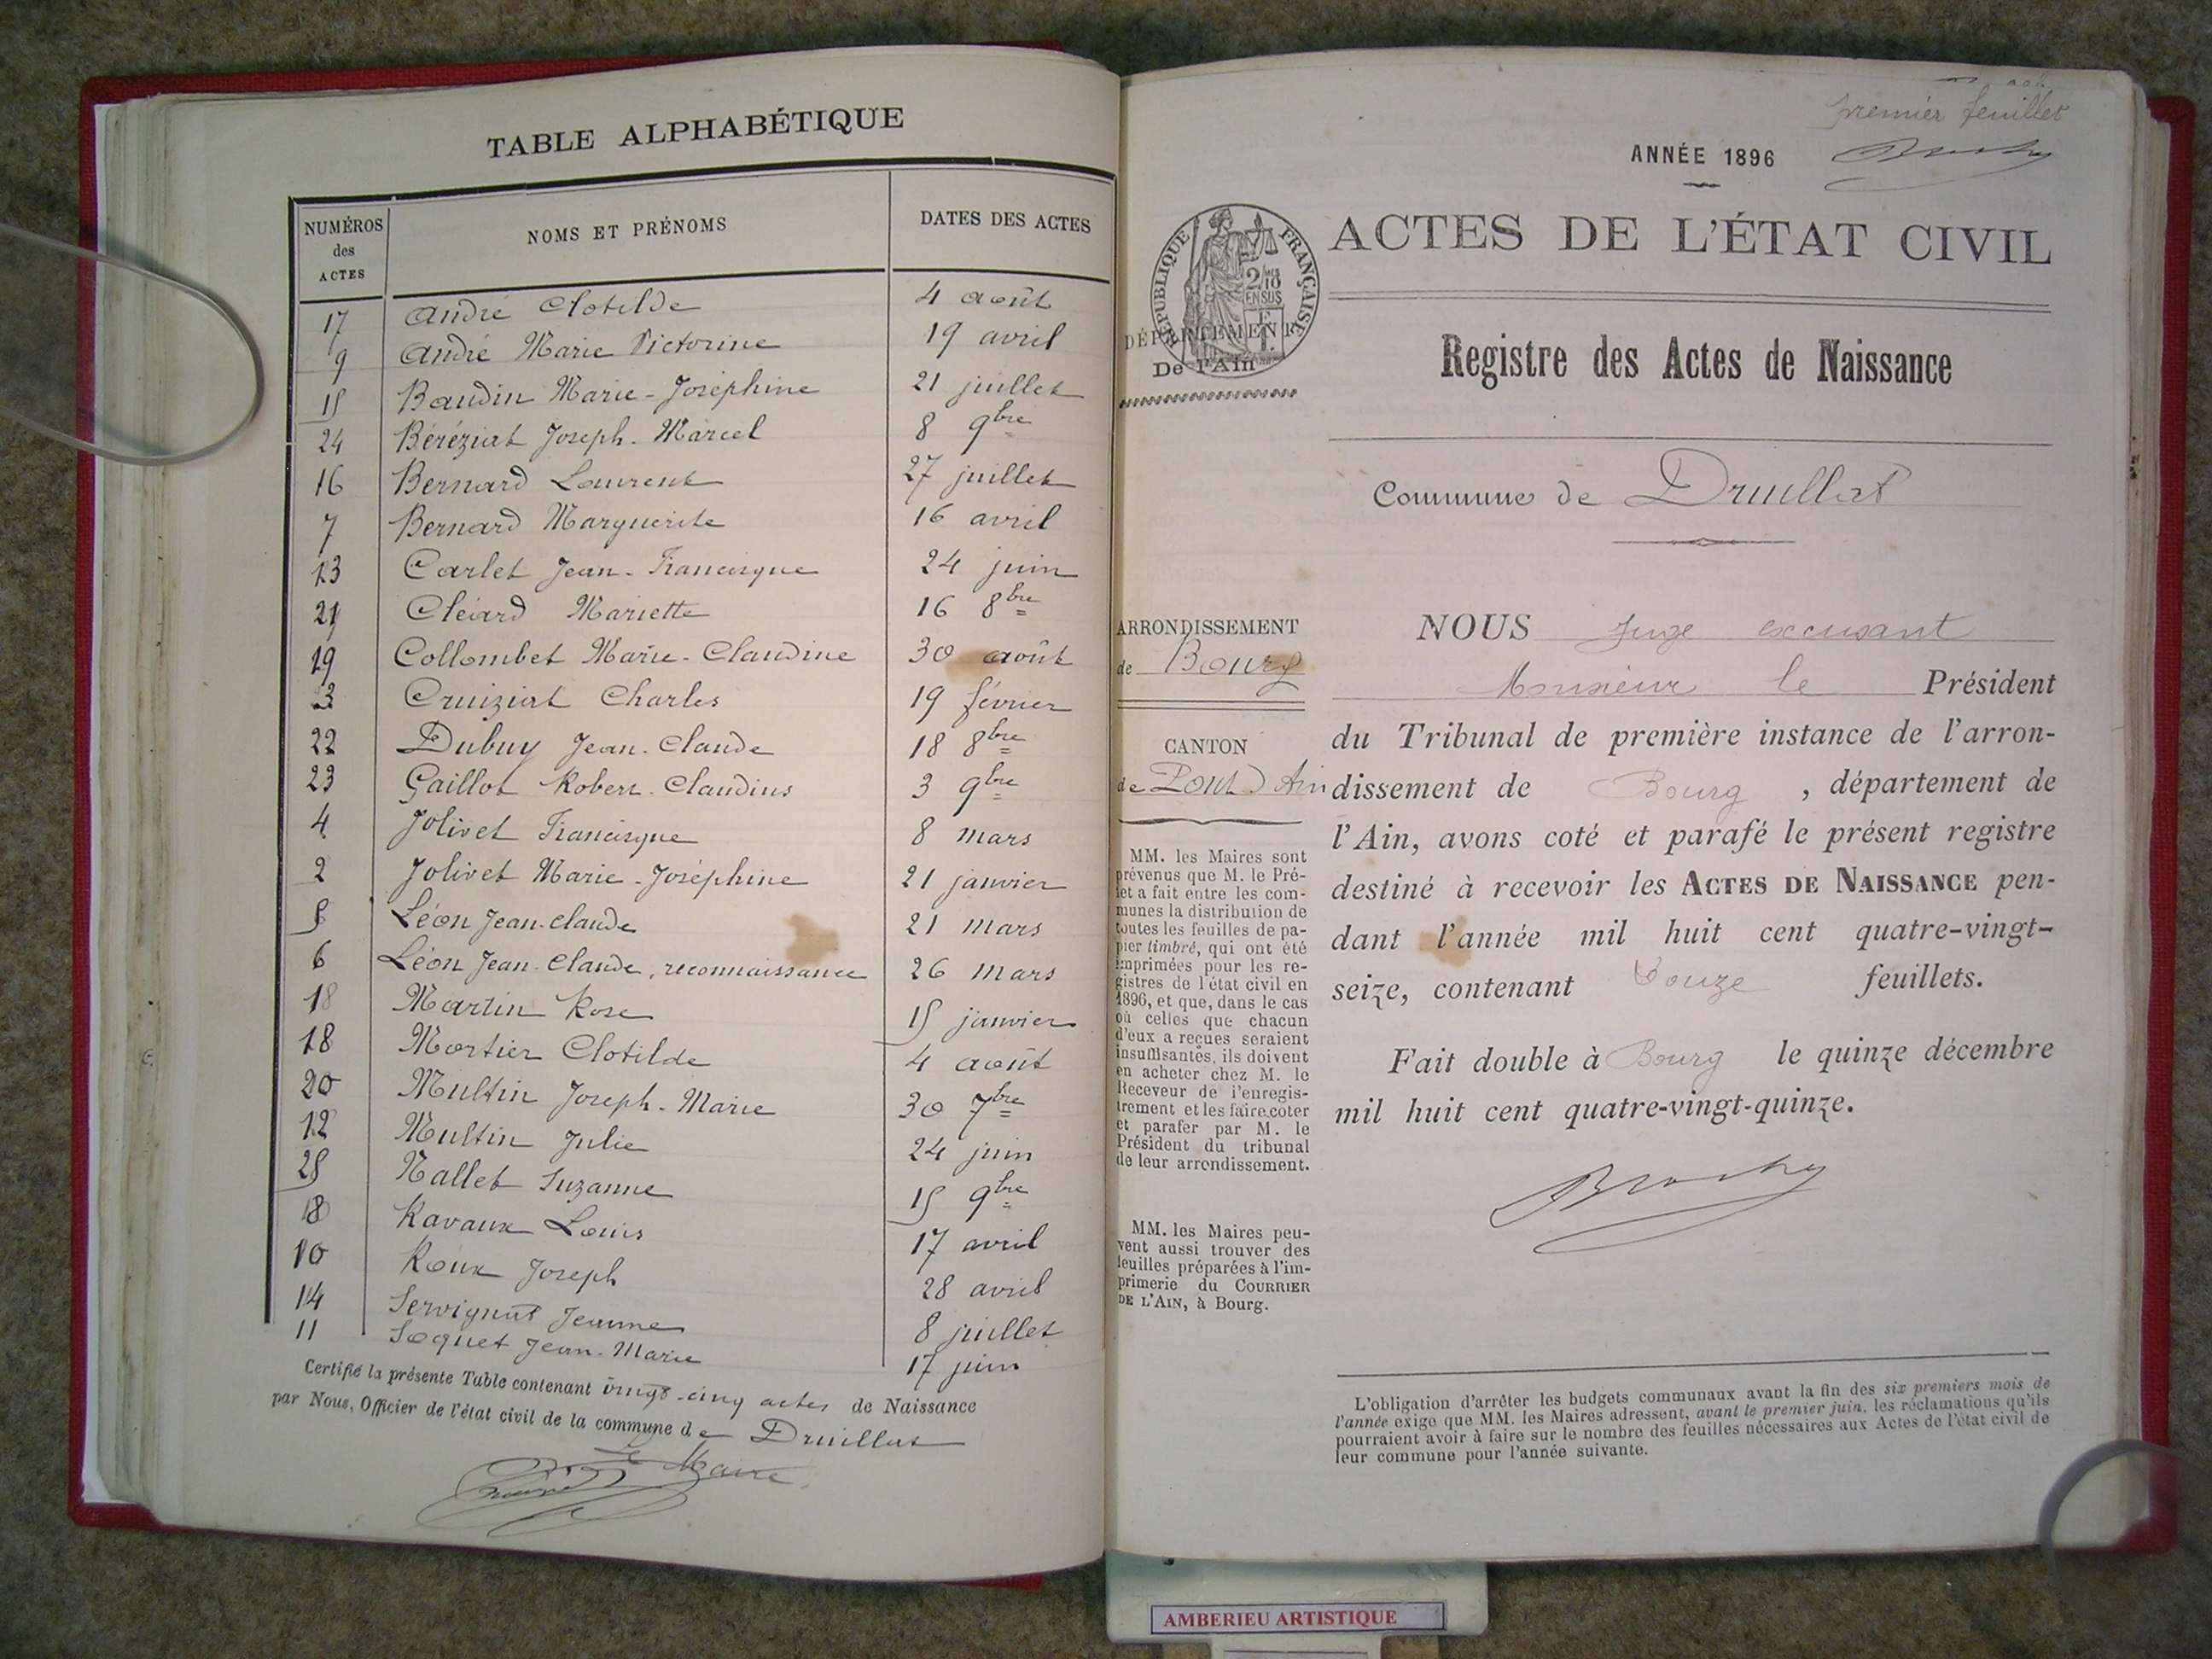 TABLE ALPHABÉTIQUE
NUMÉROS des ACTES NOMS ET PRÉNOMS DATES DES ACTES
17 André Clotilde 4 août
9 André Marie Victorine 19 avril
15 Baudin Marie-Joséphine 21 juillet
24 Béréziat Joseph-Marcel 8 9bre
16 Bernard Laurent 27 juillet
7 Bernard Marguerite 16 avril
13 Carlet Jean-Francisque 24 juin
21 Cléard Mariette 16 8bre
19 Collombet Marie-Claudine 30 août
3 Cruiziat Charles 19 février
22 Dubuy Jean-Claude 18 8bre
23 Gaillot Robert-Claudius 3 9bre
4 Jolivet Francisque 8 mars
2 Jolivet Marie-Joséphine 21 janvier
5 Léon Jean-Claude 21 mars
6 Léon Jean-Claude, reconnaissance 26 mars
Martin Rose 15 janvier
18 Mortier Clotilde 4 août
20 Multin Joseph-Marie 30 7bre
12 Multin Julie 24 juin
25 Nallet Suzanne 15 9bre
8 Ravaux Louis 17 avril
10 Roux Joseph 28 avril
14 Servignat Jeanne 8 juillet
11 Soquet Jean-Marie 17 juin
Certifié la présente Table contenant vingt-cinq actes de Naissance
par Nous, Officier de l'état civil de la commune de Druillat
Le Maire
premier feuillet
ANNÉE 1896
RÉPUBLIQUE FRANÇAISE
2/10 EN SUS
ACTES DE L'ÉTAT CIVIL
DÉPARTEMENT
De l'Ain
Registre des Actes de Naissance
Commune de Druillat
ARRONDISSEMENT
de Bourg
CANTON
de Pont d'Ain
MM. les Maires sont
prévenus que M. le Pré-
fet a fait entre les com-
munes la distribution de
toutes les feuilles de pa-
pier timbré, qui ont été
imprimées pour les re-
gistres de l'état civil en
1896, et que, dans le cas
où celles que chacun
d'eux a reçues seraient
insuffisantes, ils doivent
en acheter chez M. le
Receveur de l'enregis-
trement et les faire coter
et parafer par M. le
Président du tribunal
de leur arrondissement.
MM. les Maires peu-
vent aussi trouver des
feuilles préparées à l'im-
primerie du COURRIER
DE L'AIN, à Bourg.
NOUS Juge excusant
Monsieur le Président
du Tribunal de première instance de l'arron-
dissement de Bourg, département de
l'Ain, avons coté et parafé le présent registre
destiné à recevoir les ACTES DE NAISSANCE pen-
dant l'année mil huit cent quatre-vingt-
seize, contenant Douze feuillets.
Fait double à Bourg le quinze décembre
mil huit cent quatre-vingt-quinze.
L'obligation d'arrêter les budgets communaux avant la fin des six premiers mois de
l'année exige que MM. les Maires adressent, avant le premier juin, les réclamations qu'ils
pourraient avoir à faire sur le nombre des feuilles nécessaires aux Actes de l'état civil de
leur commune pour l'année suivante.
AMBERIEU ARTISTIQUE